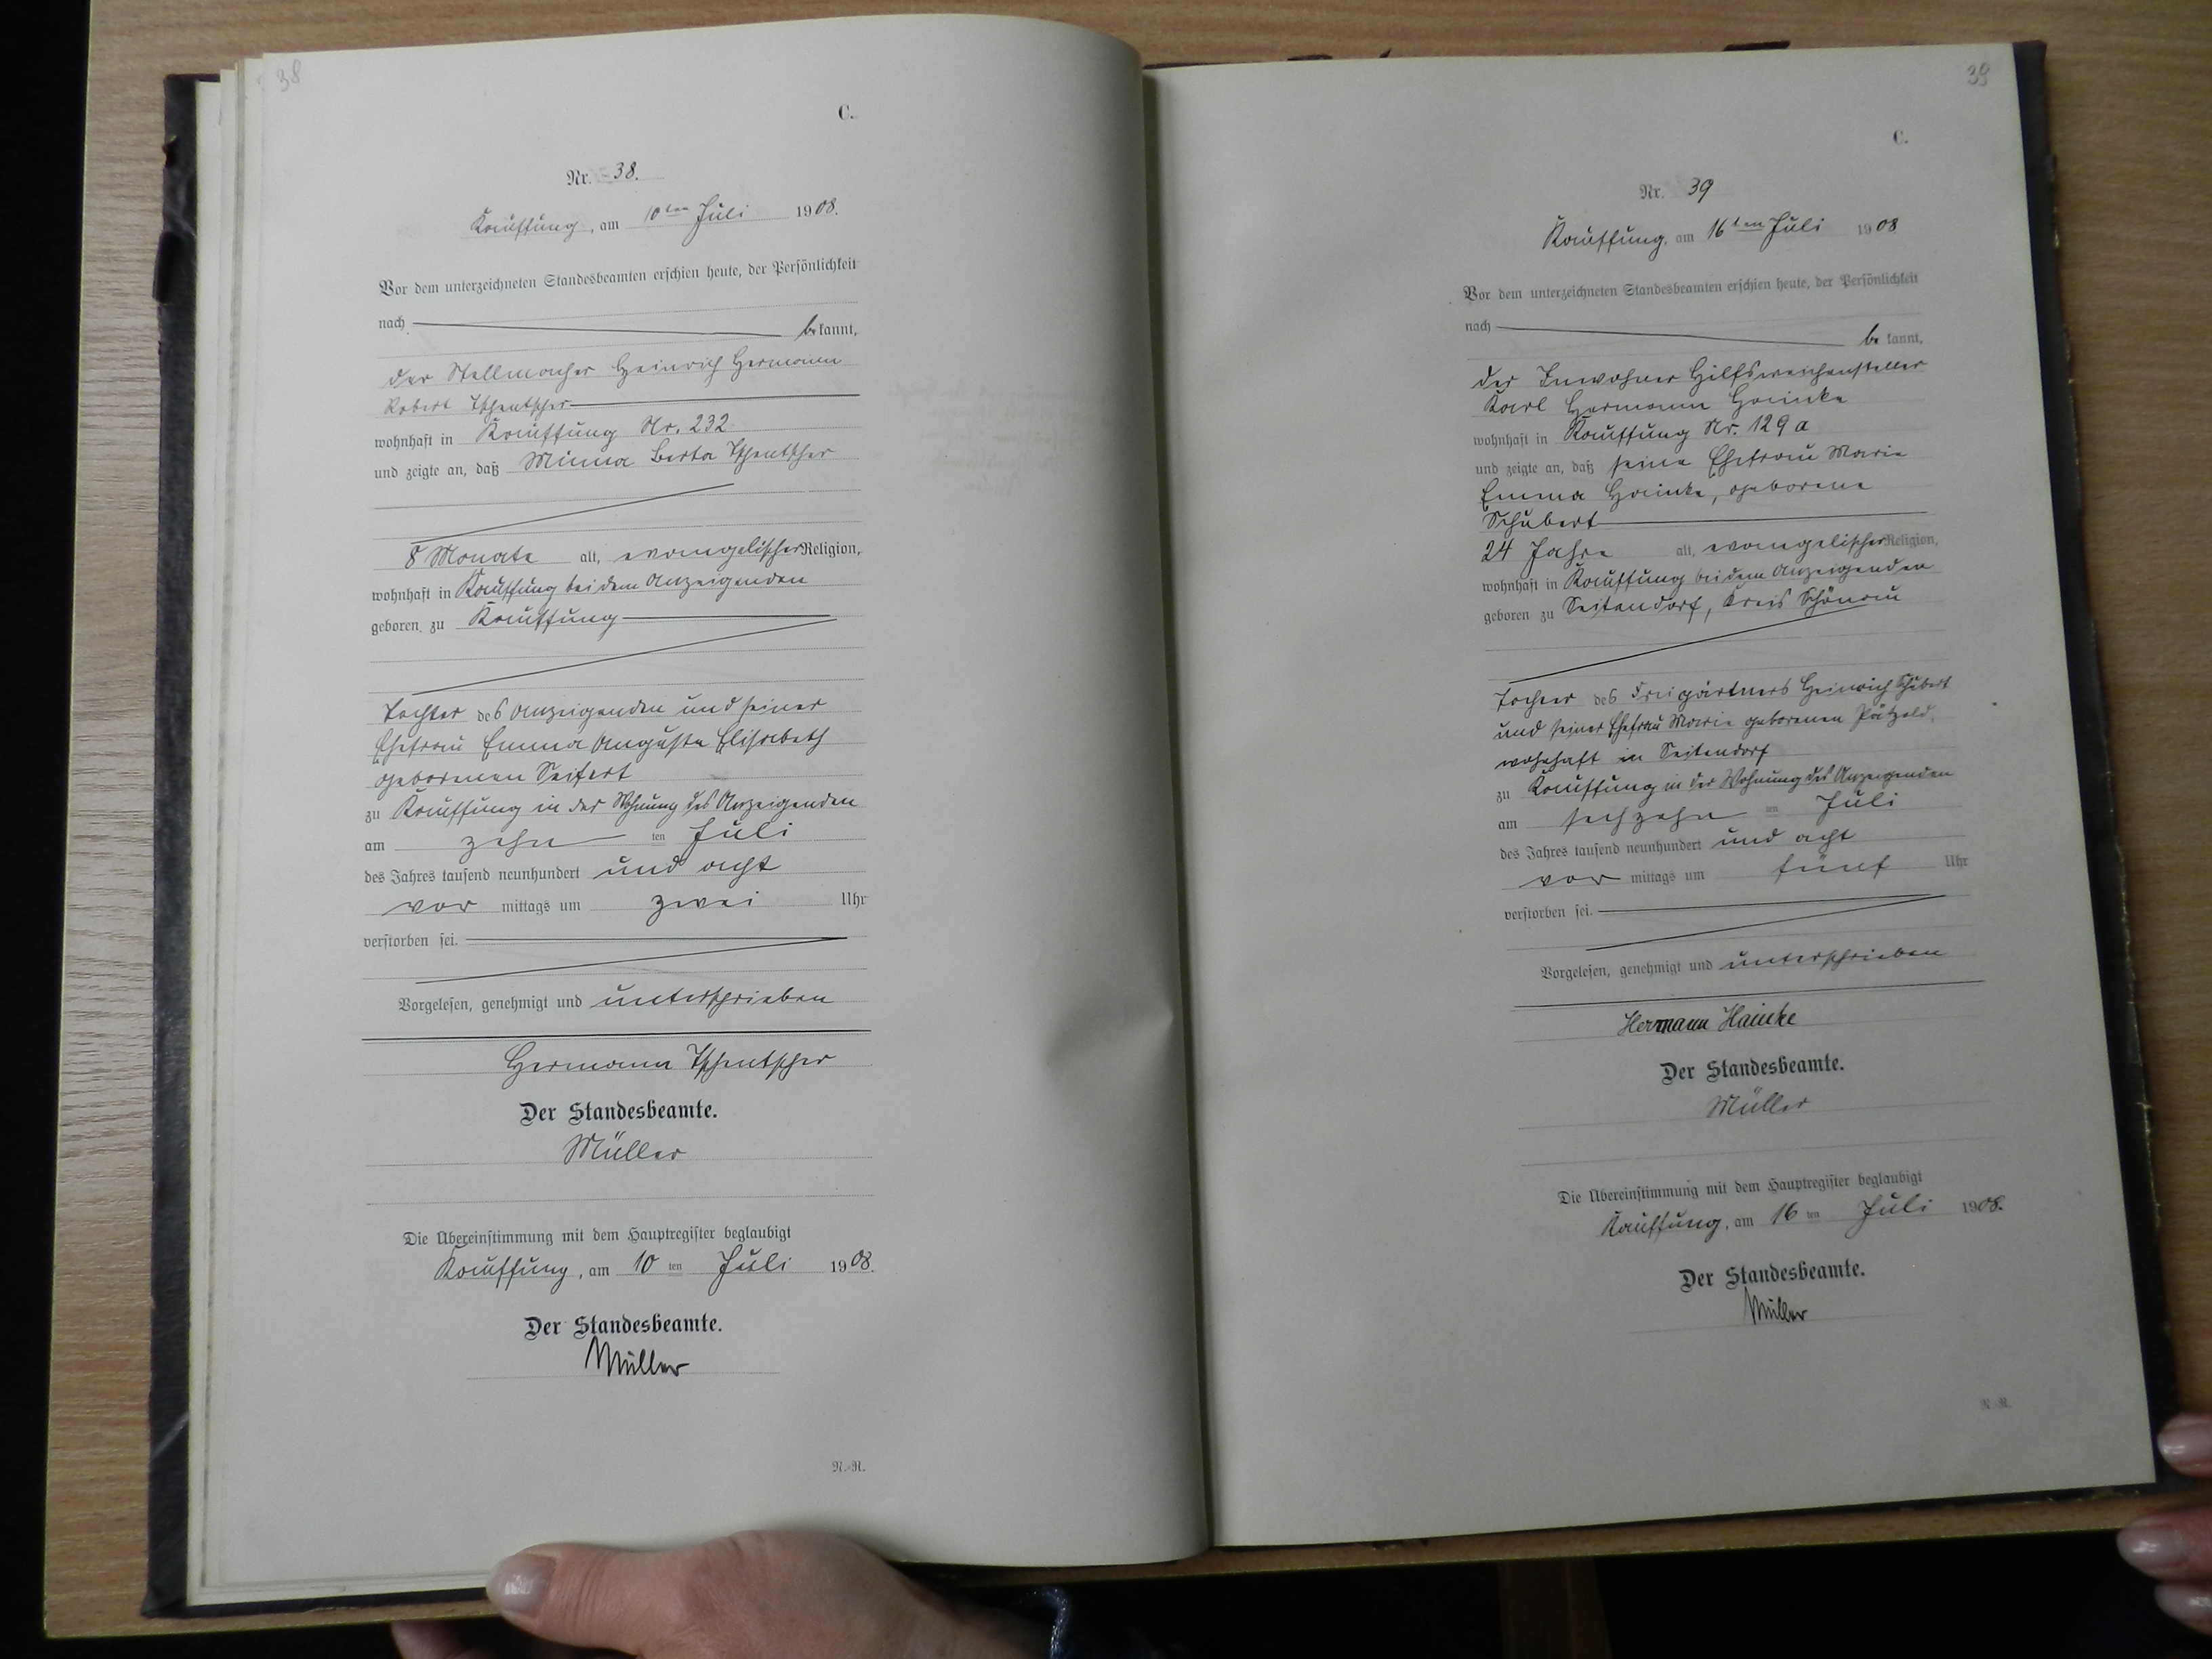 38
C.
Nr. 38.
Kauffung, am 10ten Juli 1908.
Vor dem unterzeichneten Standesbeamten erschien heute, der Persönlichkeit
nach bekannt,
der Stellmacher Heinrich Hermann
Robert Tschentscher
wohnhaft in Kauffung Nr. 232
und zeigte an, daß Minna Berta Tschentscher
8 Monate alt, evangelischer Religion,
wohnhaft in Kauffung bei dem Anzeigenden
geboren zu Kauffung
Tochter des Anzeigenden und seiner
Ehefrau Emma Auguste Elisabeth
geborenen Seifert
zu Kauffung in der Wohnung des Anzeigenden
am zehn ten Juli
des Jahres tausend neunhundert und acht
vor mittags um zwei Uhr
verstorben sei.
Vorgelesen, genehmigt und unterschrieben
Hermann Tschentscher
Der Standesbeamte.
Müller
Die Übereinstimmung mit dem Hauptregister beglaubigt
Kauffung, am 10 ten Juli 1908.
Der Standesbeamte.
Müller
N.-R.
39
C.
Nr. 39
Kauffung, am 16ten Juli 1908
Vor dem unterzeichneten Standesbeamten erschien heute, der Persönlichkeit
nach bekannt,
der Inwohner Hilfsweichensteller
Karl Hermann Hainke
wohnhaft in Kauffung Nr. 129 a
und zeigte an, daß seine Ehefrau Marie
Emma Hainke, geborene
Schubert
24 Jahre alt, evangelischer Religion,
wohnhaft in Kauffung bei dem Anzeigenden
geboren zu Seitendorf, Kreis Schönau
Tochter des Freigärtners Heinrich Schubert
und seiner Ehefrau Marie geborenen Pätzold,
wohnhaft in Seitendorf
zu Kauffung in der Wohnung des Anzeigenden
am sechzehn ten Juli
des Jahres tausend neunhundert und acht
vor mittags um fünf Uhr
verstorben sei.
Vorgelesen, genehmigt und unterschrieben
Hermann Hainke
Der Standesbeamte.
Müller
Die Übereinstimmung mit dem Hauptregister beglaubigt
Kauffung, am 16 ten Juli 1908.
Der Standesbeamte.
Müller
N.-R.